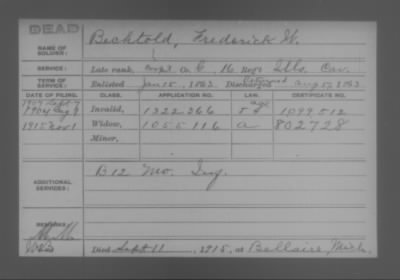 DEAD
NAME OF SOLDIER: Bechtold, Frederick W.
SERVICE: Late rank, Corpl Co. C, 16 Reg't Ills. Cav.
TERM OF SERVICE: Enlisted Jan 15, 1863. Discharged Aug 1863.
DATE OF FILING. CLASS. APPLICATION NO. LAW. CERTIFICATE NO.
1904 Invalid, 1322366 1099512
1915 Nov 1 Widow, 1055116 a 802728
Minor,
ADDITIONAL SERVICES: B 12 Mo. Inf.
REMARKS:
Died Sept 11, 1915, at Bellaire, Mich.